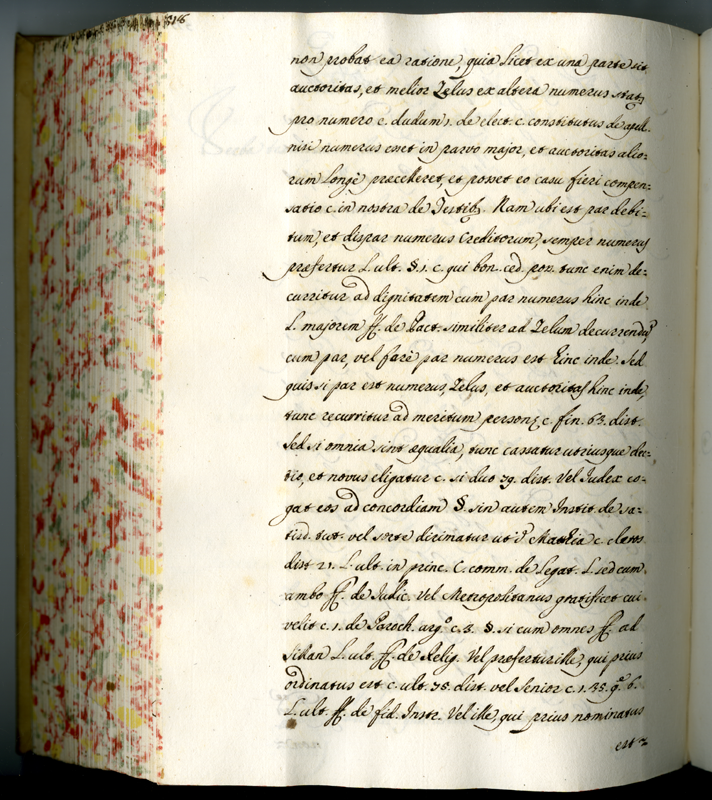 518
non probat ea ratione, quia licet ex una parte sit
auctoritas, et melior Zelus ex altera numerus stat,
pro numero c. dudum 1. de elect. c. constitutus de apell.
nisi numerus esset in parvo major, et auctoritas alio-
rum longè præcelleret, et posset eo casu fieri compen-
satio c. in nostra de Testib. Nam ubi est par debi-
tum, et dispar numerus Creditorum, semper numerus
præfertur L. ult. §. 1. c. qui bon. ced. pos. tunc enim de-
curritur ad dignitatem cum par numerus hinc inde
L. majorem ff. de Pact. similiter ad Zelum decurrendũ
cum par, vel farè par numerus est hinc inde. Sed
quis si par est numerus, Zelus, et auctoritas hinc inde,
tunc recurritur ad meritum personę c. fin. 63. dist.
Sed si omnia sint æqualia, tunc cassatur utriusque elec-
tio, et novus eligatur c. si duo 79. dist. Vel Iudex co-
gat eos ad concordiam §. sin autem Instit. de sa-
tisd. tut. vel sorte dirimatur ut i Mathia c. cleros
dist 21. L. ult. in princ. C. comm. de Legat. L. sed cum
ambo ff. de Iudic. Vel Metropolitanus gratificet cui
velit c. 1. de Paroch. argº c. 3. §. si cum omnes ff. ad
Sillan L. ult. ff. de Relig. Vel præfertur ille, qui prius
ordinatus est c. ult. 75. dist. vel Senior c. 1. 35. q. 6.
L. ult. ff. de fid. Instr. Vel ille, qui prius nominatus
est